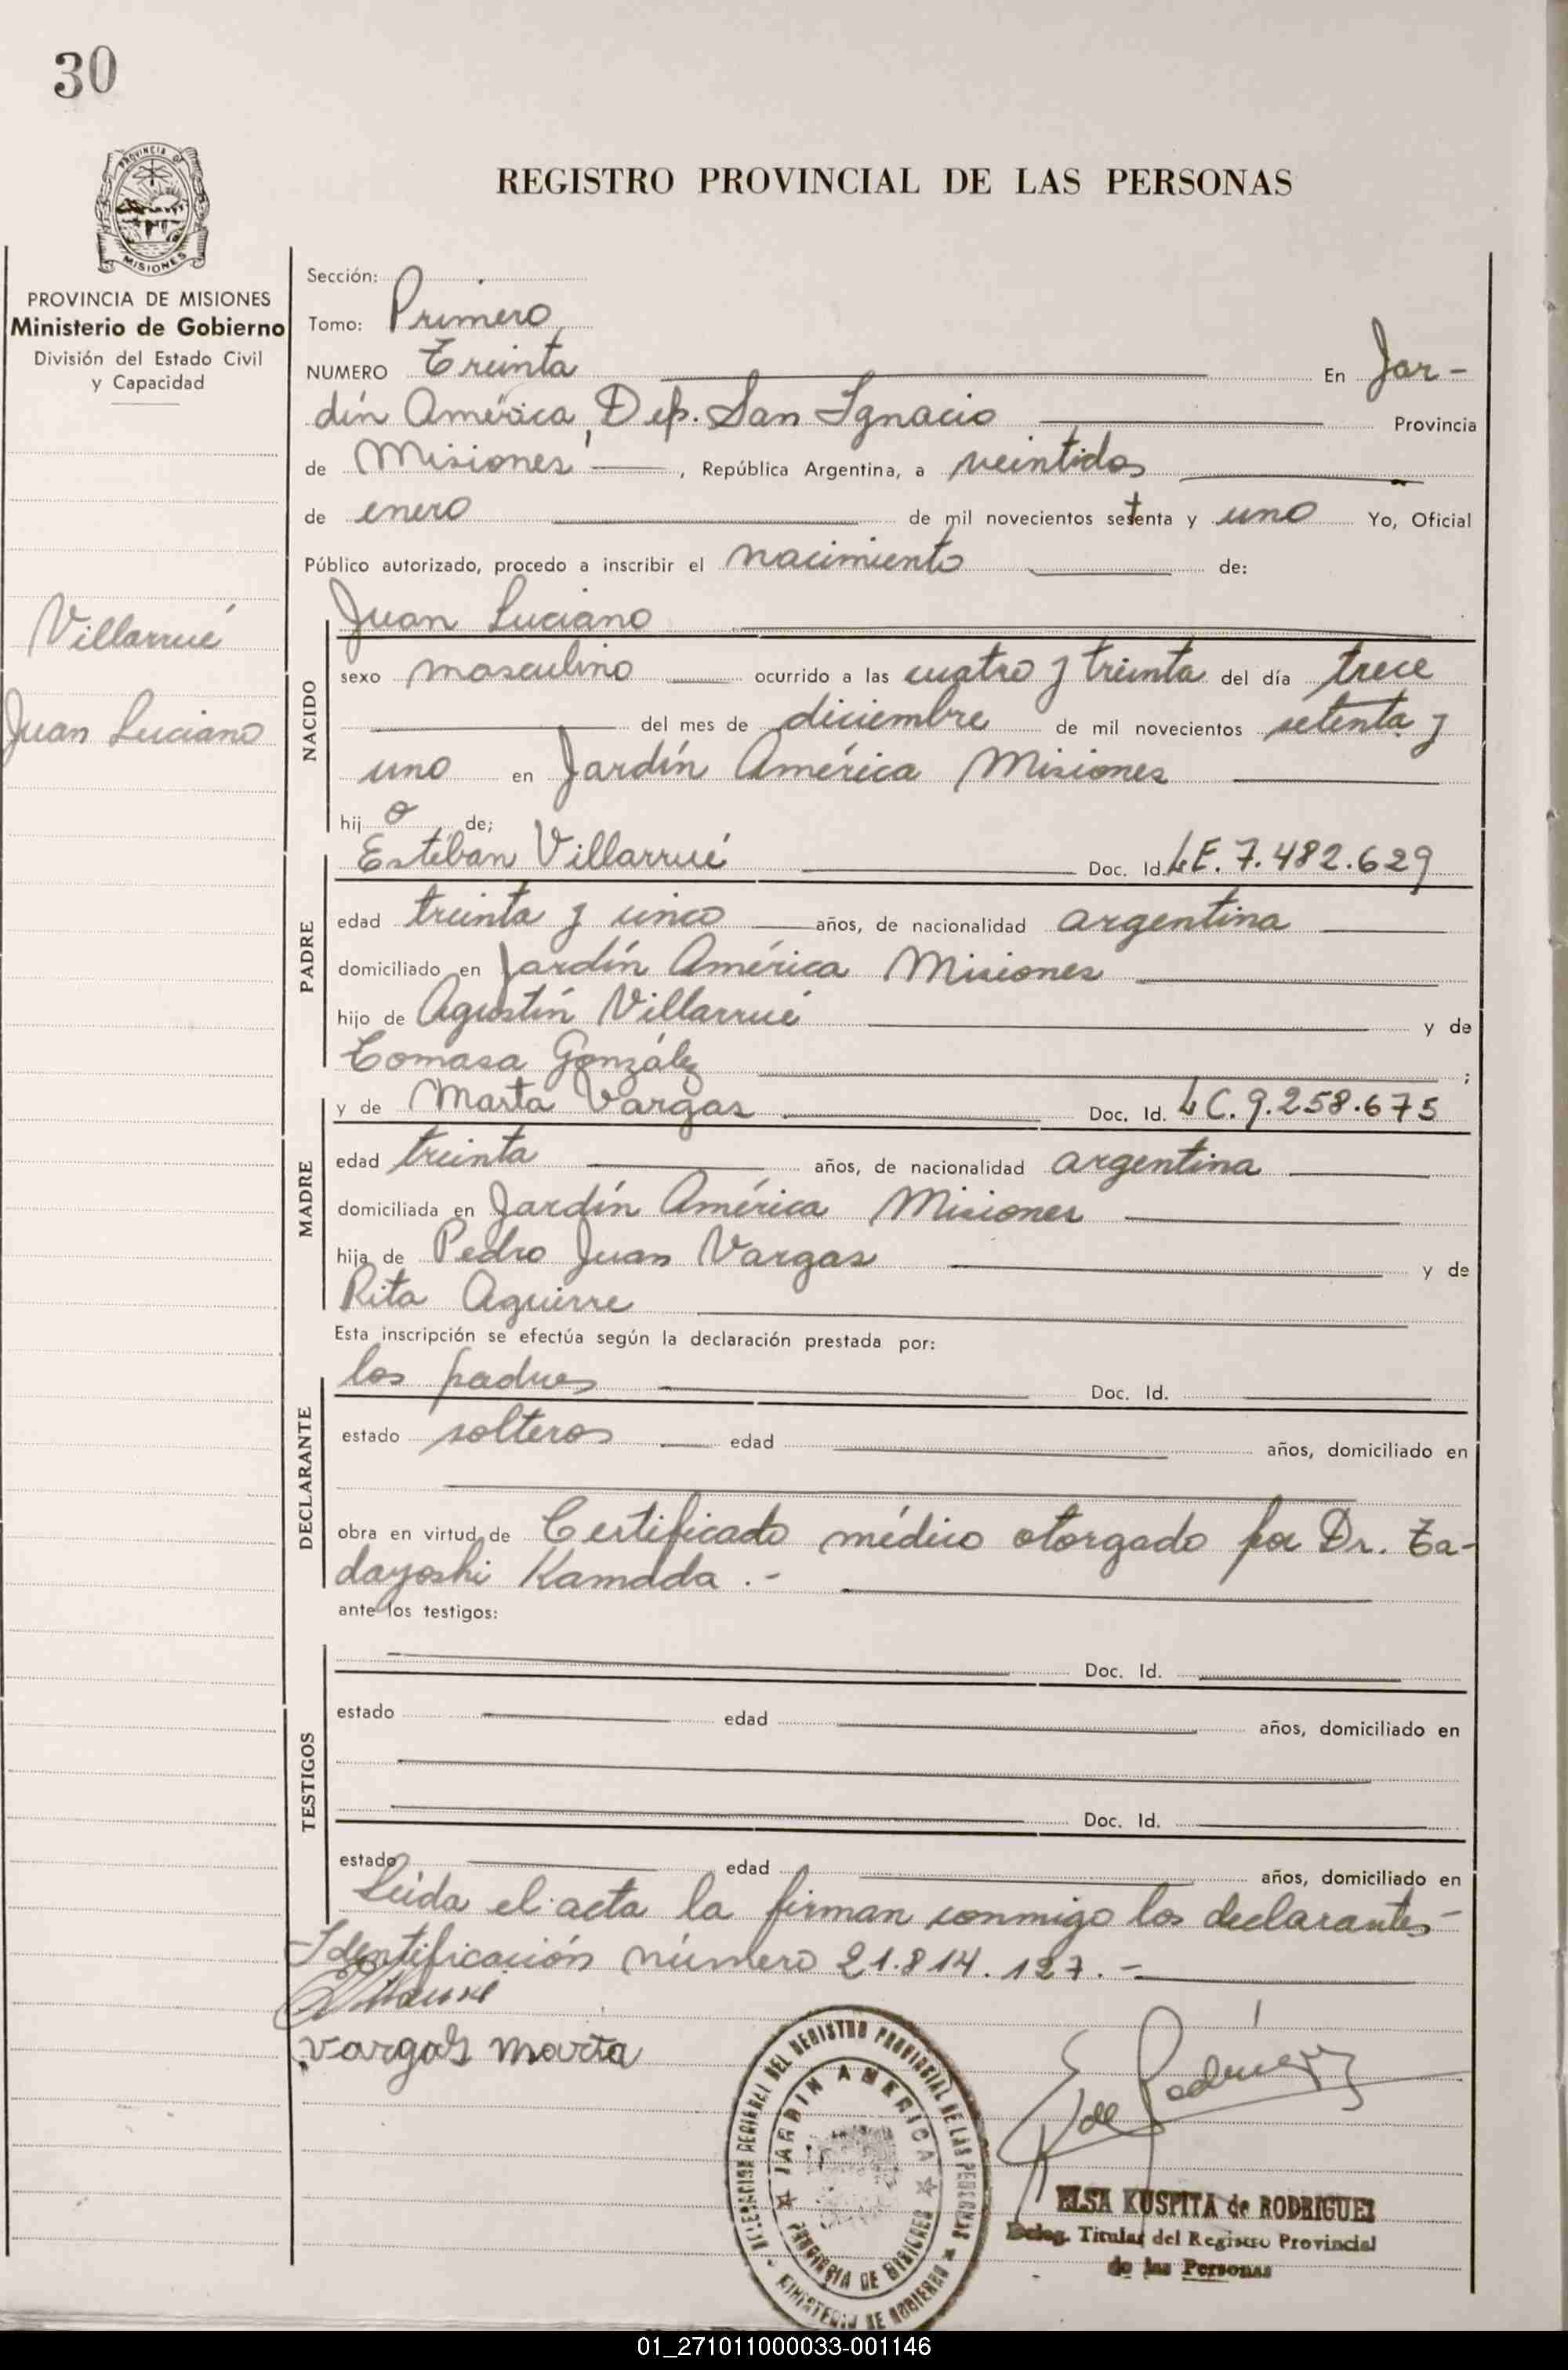 30
PROVINCIA DE
MISIONES
REGISTRO PROVINCIAL DE LAS PERSONAS
PROVINCIA DE MISIONES
Ministerio de Gobierno
División del Estado Civil
y Capacidad
Villarrué
Juan Luciano
Sección:
Tomo: Primero
NUMERO Treinta En Jar-
dín América, Dep. San Ignacio Provincia
de Misiones, República Argentina, a veintidos
de enero de mil novecientos setenta y uno Yo, Oficial
Público autorizado, procedo a inscribir el nacimiento de:
NACIDO
Juan Luciano
sexo masculino ocurrido a las cuatro y treinta del día trece
del mes de diciembre de mil novecientos setenta y
uno en Jardín América Misiones
hijo de;
PADRE
Estéban Villarrué Doc. Id. L.E. 7.482.629
edad treinta y cinco años, de nacionalidad argentina
domiciliado en Jardín América Misiones
hijo de Agustín Villarrué y de
Tomasa González ;
MADRE
y de Marta Vargas Doc. Id. L C. 9.258.675
edad treinta años, de nacionalidad argentina
domiciliada en Jardín América Misiones
hija de Pedro Juan Vargas y de
Rita Aguirre
Esta inscripción se efectúa según la declaración prestada por:
DECLARANTE
los padres Doc. Id.
estado solteros edad años, domiciliado en
obra en virtud de Certificado médico otorgado por Dr. Ta-
dayoshi Kamada.-
ante los testigos:
TESTIGOS
Doc. Id.
estado edad años, domiciliado en
Doc. Id.
estado edad años, domiciliado en
Leída el acta la firman conmigo los declarantes-
Identificación número 21.814.127.-
Vargas marta
DELEGACION REGIONAL DEL REGISTRO PROVINCIAL DE LAS PERSONAS
MINISTERIO DE GOBIERNO
JARDIN AMERICA
PROVINCIA DE MISIONES
E de Rodríguez
ELSA KUSPITA de RODRIGUEZ
Deleg. Titular del Registro Provincial
de las Personas
01_271011000033-001146